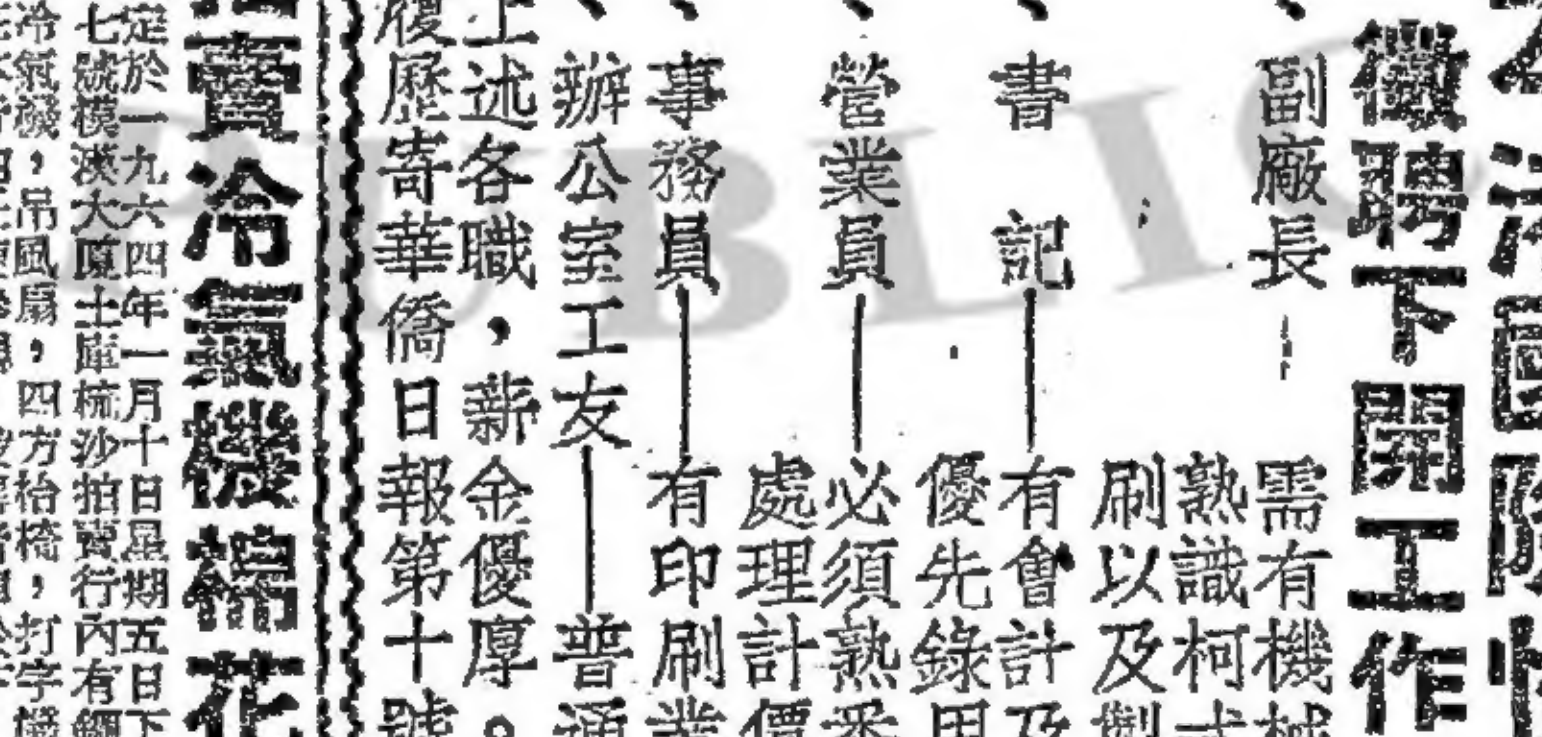 徵聘下開工作
副廠長
需有機械
熟識柯式
刷以及製
書記——有會計及
優先錄用
營業員——必須熟悉
處理計價
事務員——有印刷業
辦公室工友——普通
上述各職，薪金優厚。
履歷寄華僑日報第十號
賣冷氣機棉花
定於一九六四年一月十日星期五日下
七號模漢大廈士庫梳沙拍賣行內有鋼
冷氣機，吊風扇，四方枱椅，打字機
PUBLIC